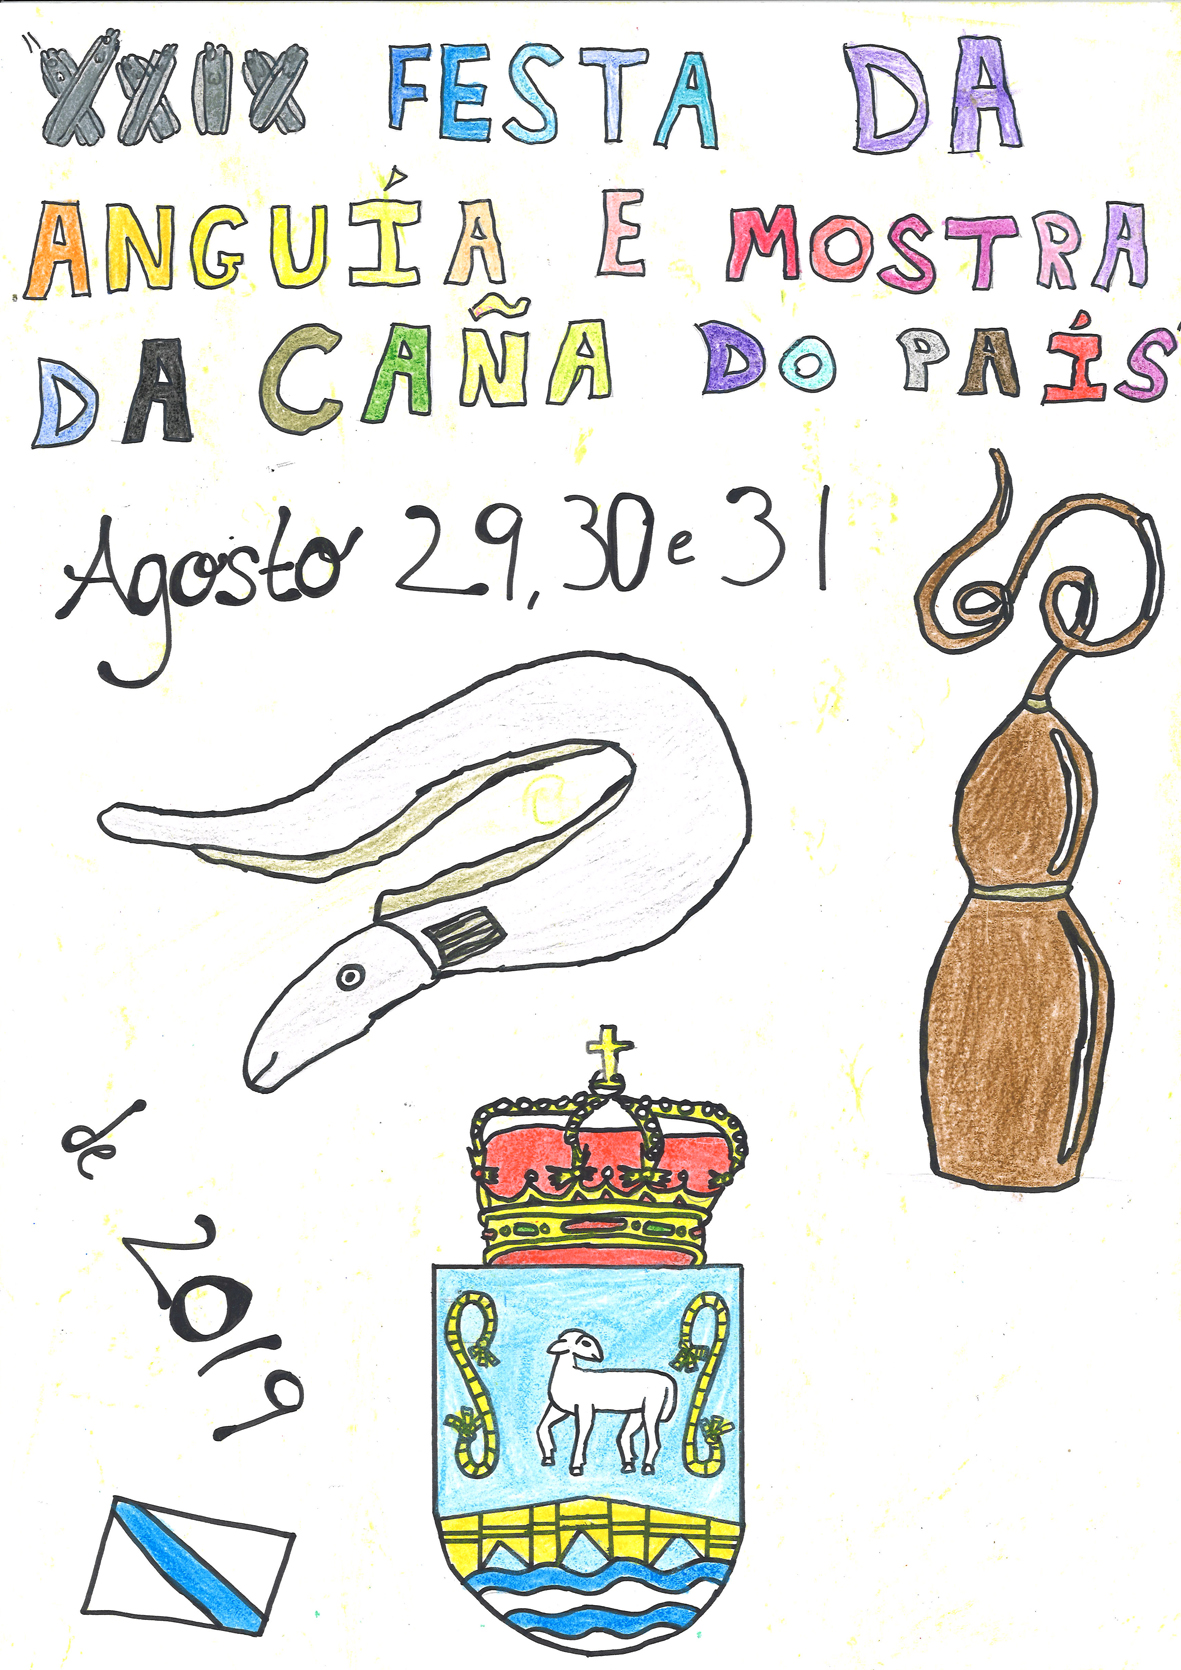 XXIX FESTA DA
ANGUÍA E MOSTRA
DA CAÑA DO PAÍS
Agosto 29, 30 e 31
de 2019